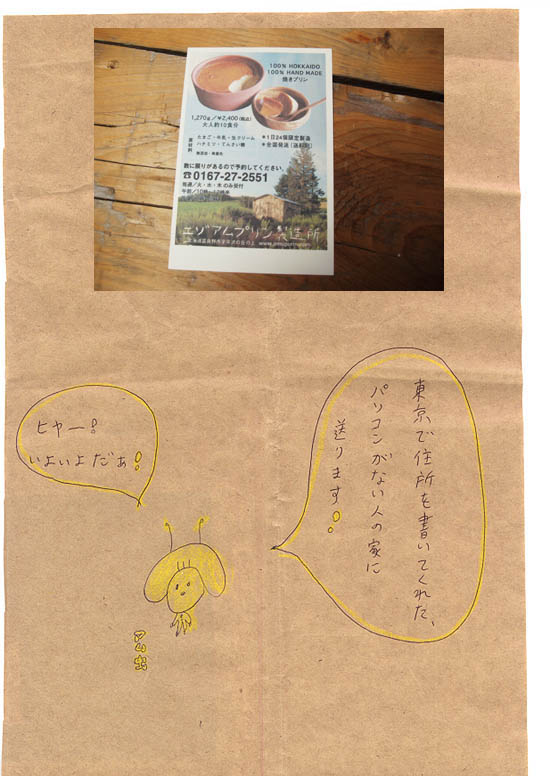 100% HOKKAIDO
100% HAND MADE
焼きプリン
1,270g/¥2,400(税込)
大人約10食分
原材料
たまご・牛乳・生クリーム
ハチミツ・てんさい糖
無添加・無着色
*1日24個限定製造
*全国発送(送料別)
数に限りがあるので予約してください。
☎0167-27-2551
毎週/火・水・木のみ受付
エゾアムプリン製造所
東京で住所を書いてくれた、
パソコンがない人の家に
送ります!!
ヒャー!
いよいよだぁ!
アム虫